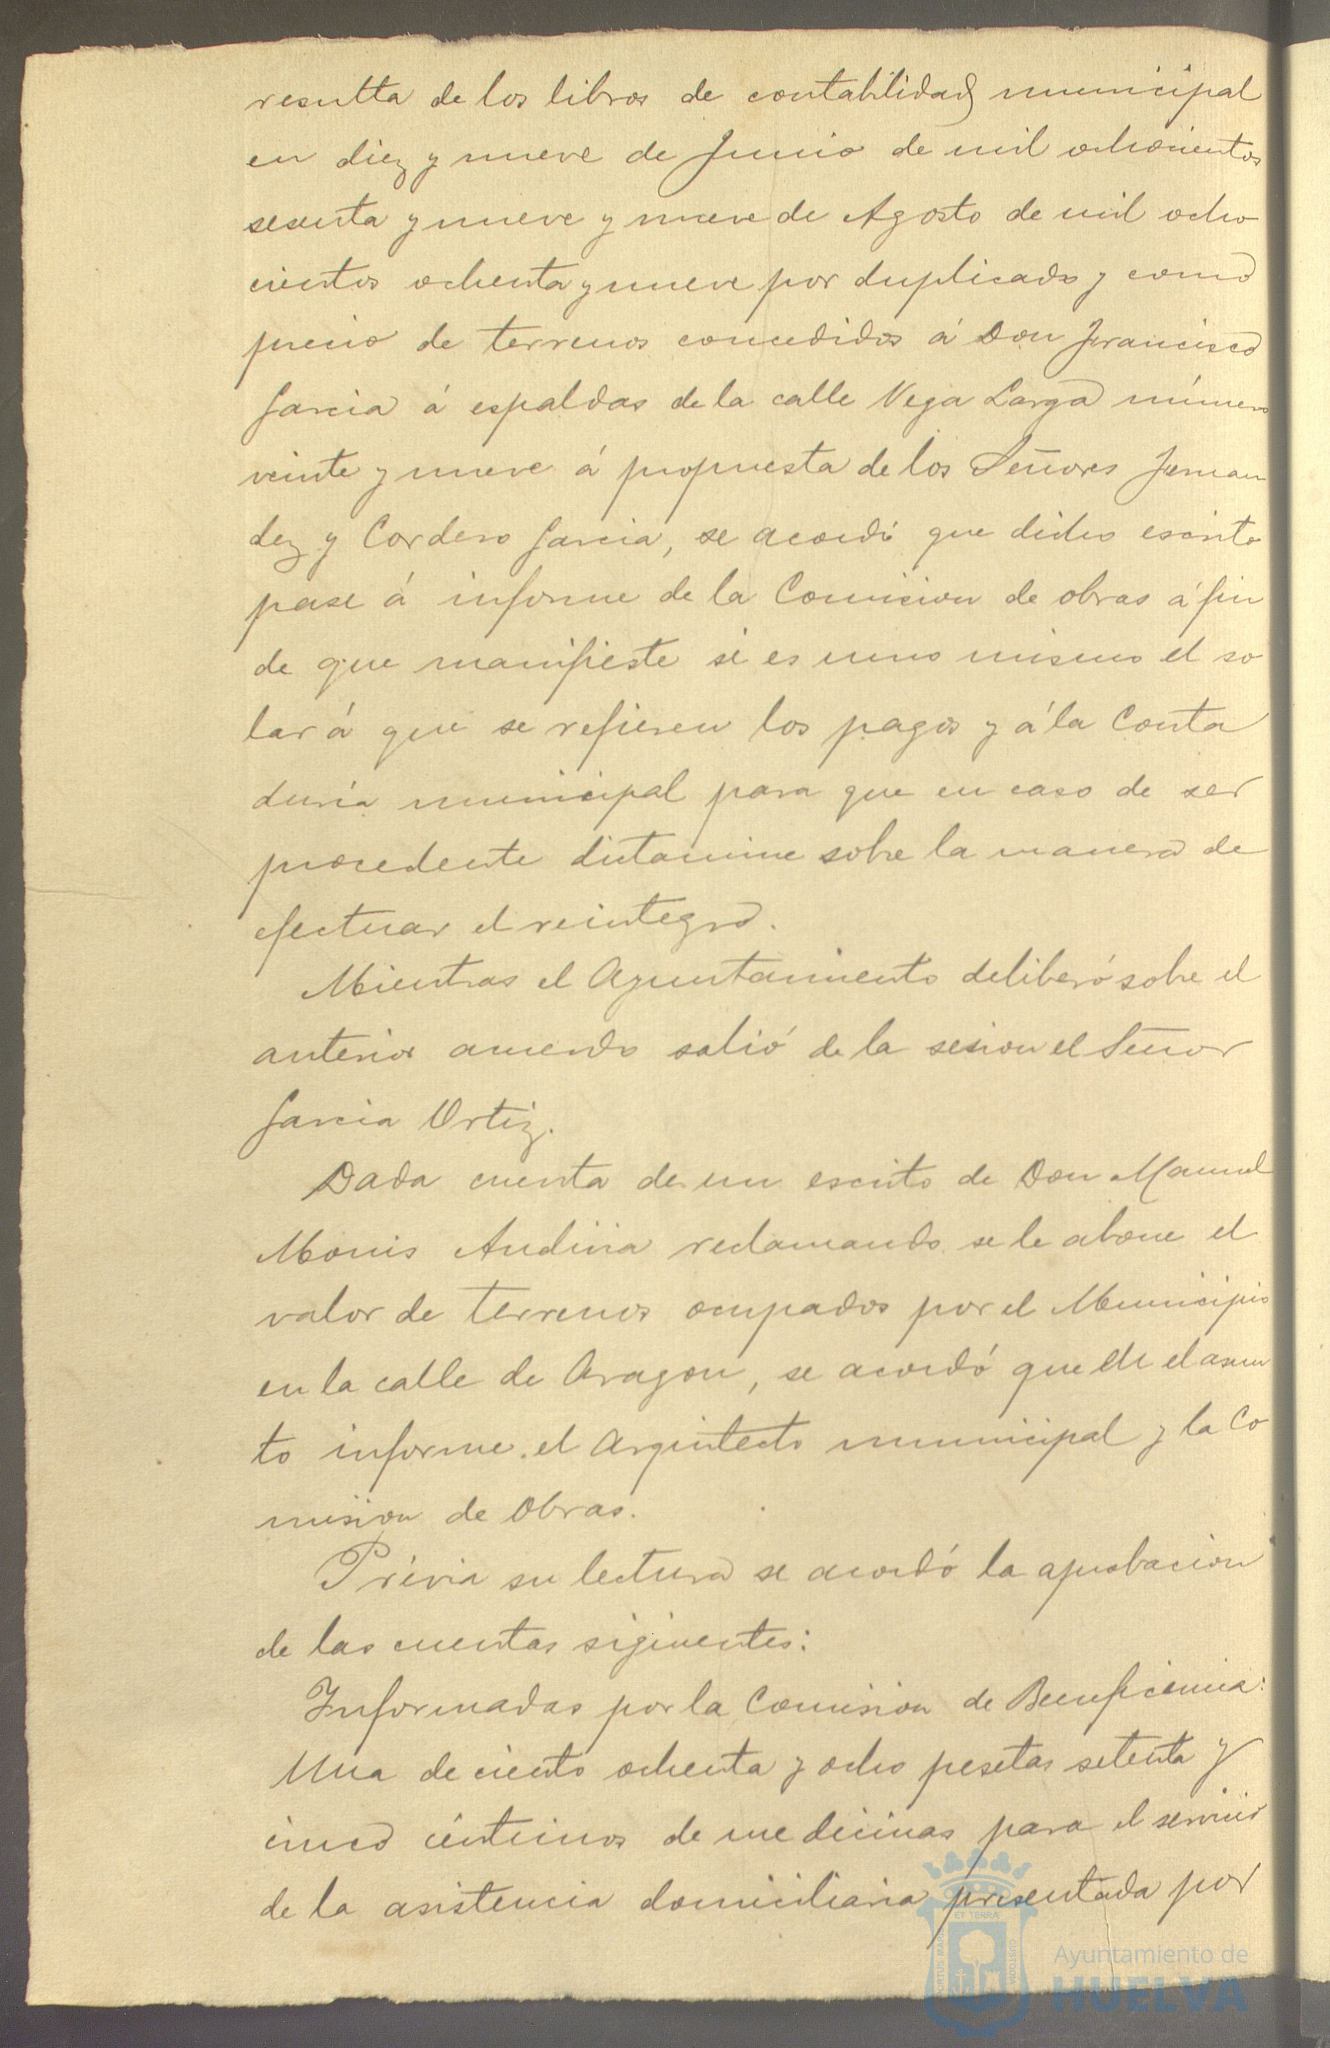 resulta de los libros de contabilidad municipal
en diez y nueve de Junio de mil ochocientos
sesenta y nueve y nueve de Agosto de mil ocho
cientos ochenta y nueve por duplicado y como
precio de terrenos concedidos á Don Francisco
Garcia á espaldas de la calle Vega Larga número
veinte y nueve á propuesta de los Señores Fernan
dez y Cordero Garcia, se acordó que dicho escrito
pase á informe de la Comision de obras á fin
de que manifieste si es uno mismo el so
lar á que se refieren los pagos y á la Conta
duria municipal para que en caso de ser
procedente dictamine sobre la manera de
efectuar el reintegro.
Mientras el Ayuntamiento deliberó sobre el
anterior acuerdo salió de la sesion el Señor
Garcia Ortiz.
Dada cuenta de un escrito de Don Manuel
Monis Andivia reclamando se le abone el
valor de terrenos ocupados por el Municipio
en la calle de Aragon, se acordó que en el asun
to informe el Arquitecto municipal y la Co
mision de Obras.
Prévia su lectura se acordó la aprobacion
de las cuentas siguientes:
Informadas por la Comision de Beneficencia:
Una de ciento ochenta y ocho pesetas setenta y
cinco céntimos de medicinas para el servicio
de la asistencia domiciliaria presentada por
PORTUS MARIS ET TERRÆ CUSTODIA
Ayuntamiento de
HUELVA